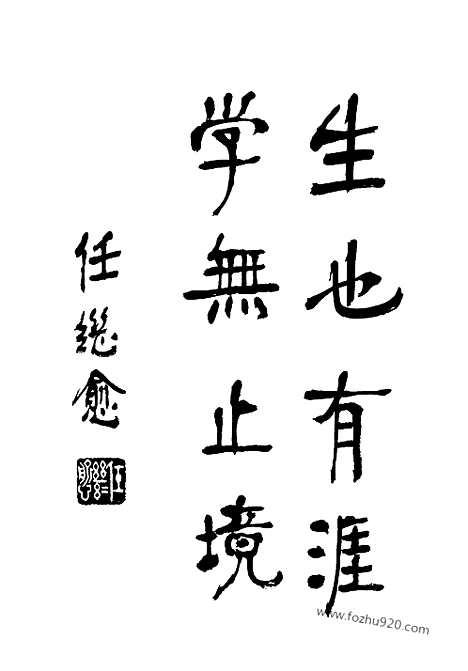 生也有涯
学無止境
任继愈
www.fozhu920.com